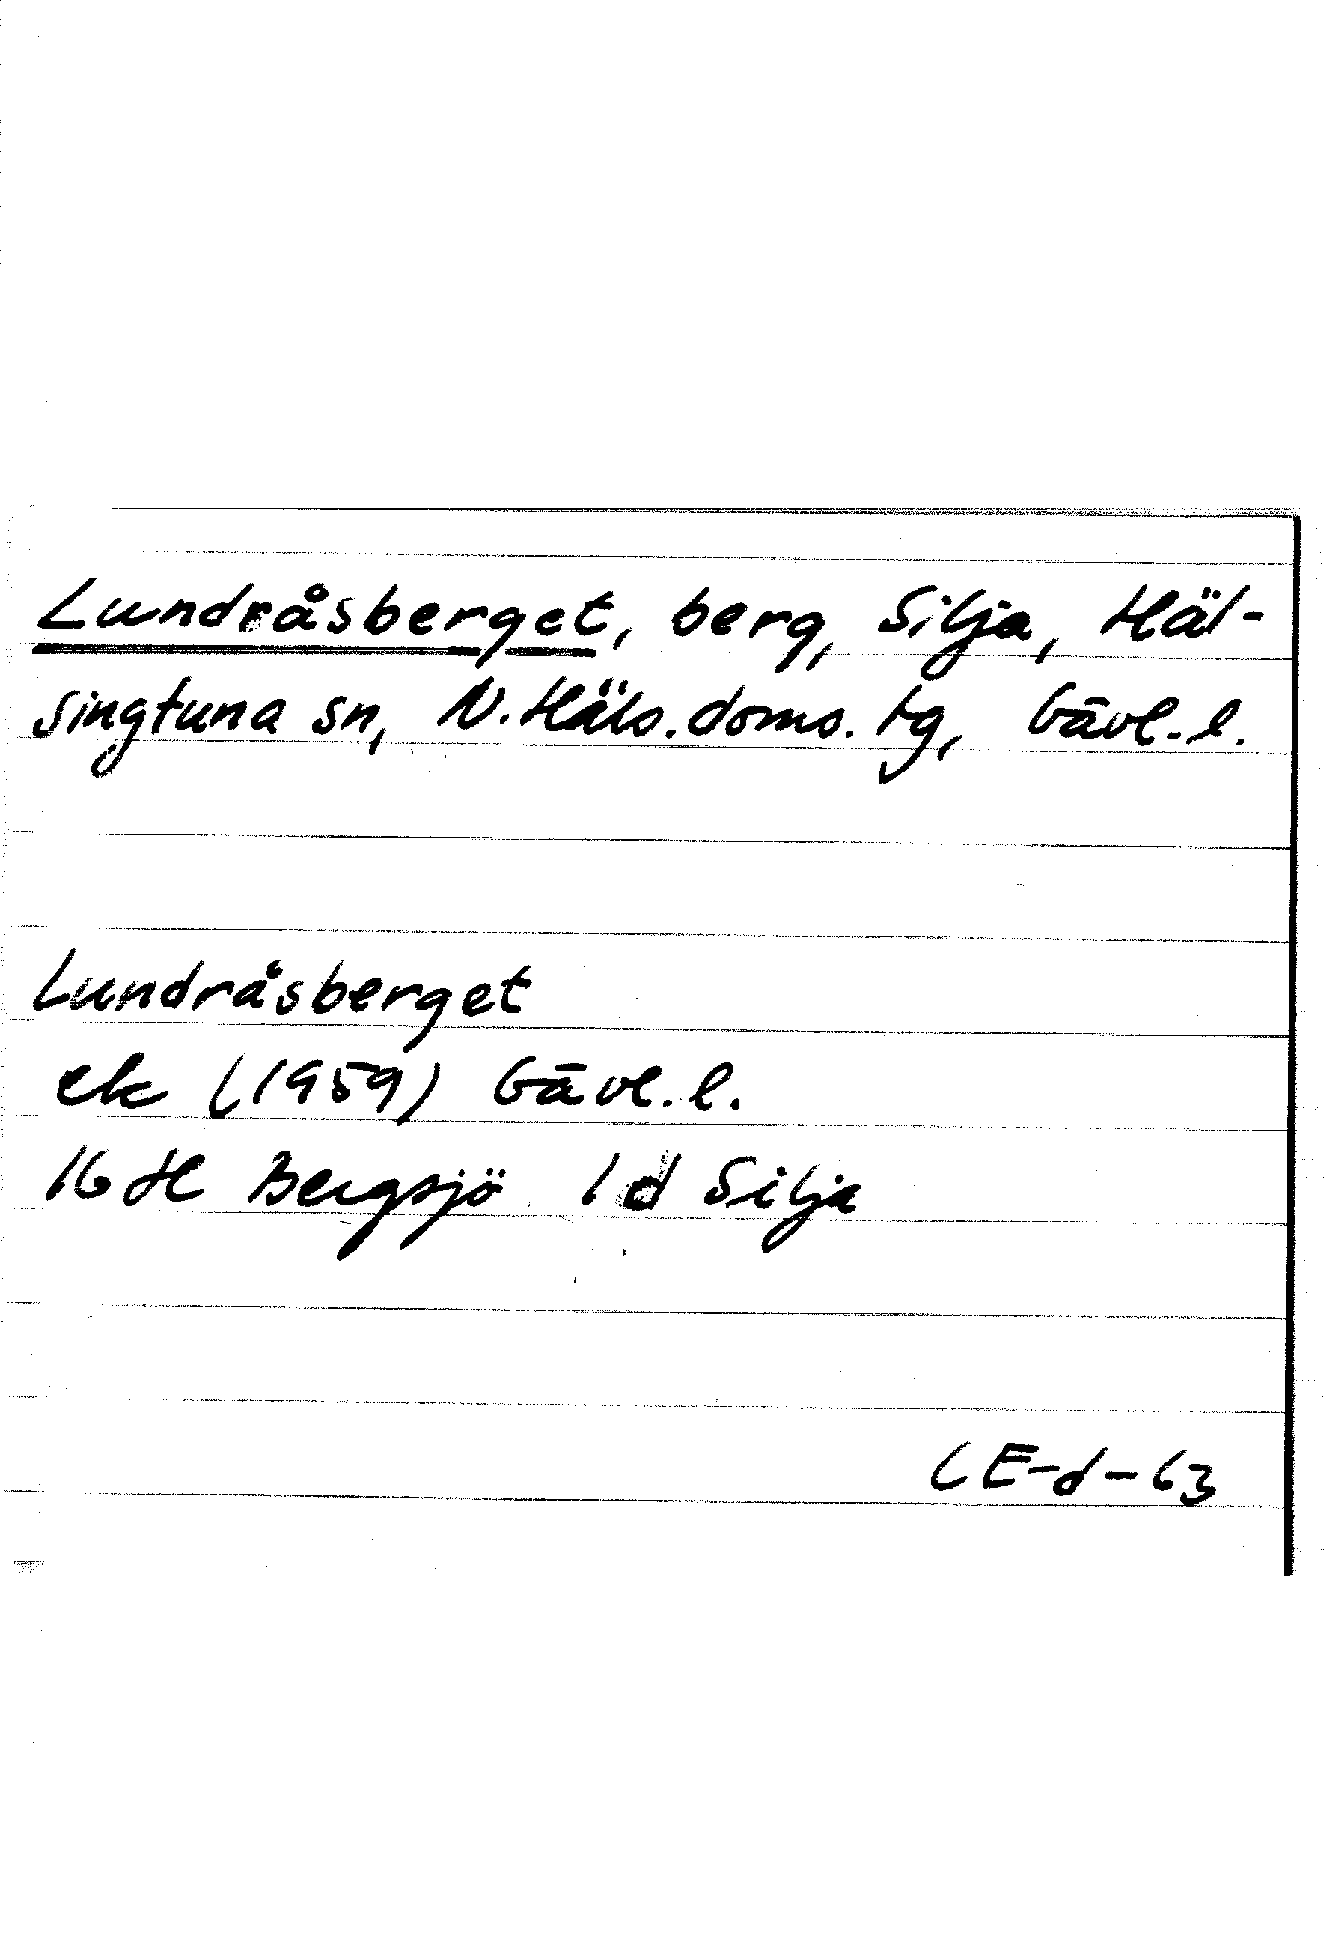 Lundråsberget, berg, Silja, Häl-
singtuna sn, N. Häls. doms. tg, Gävl. l.
Lundråsberget
ek (1959) Gävl. l.
16 H Bergsjö 1 d Silja
CE-d-63